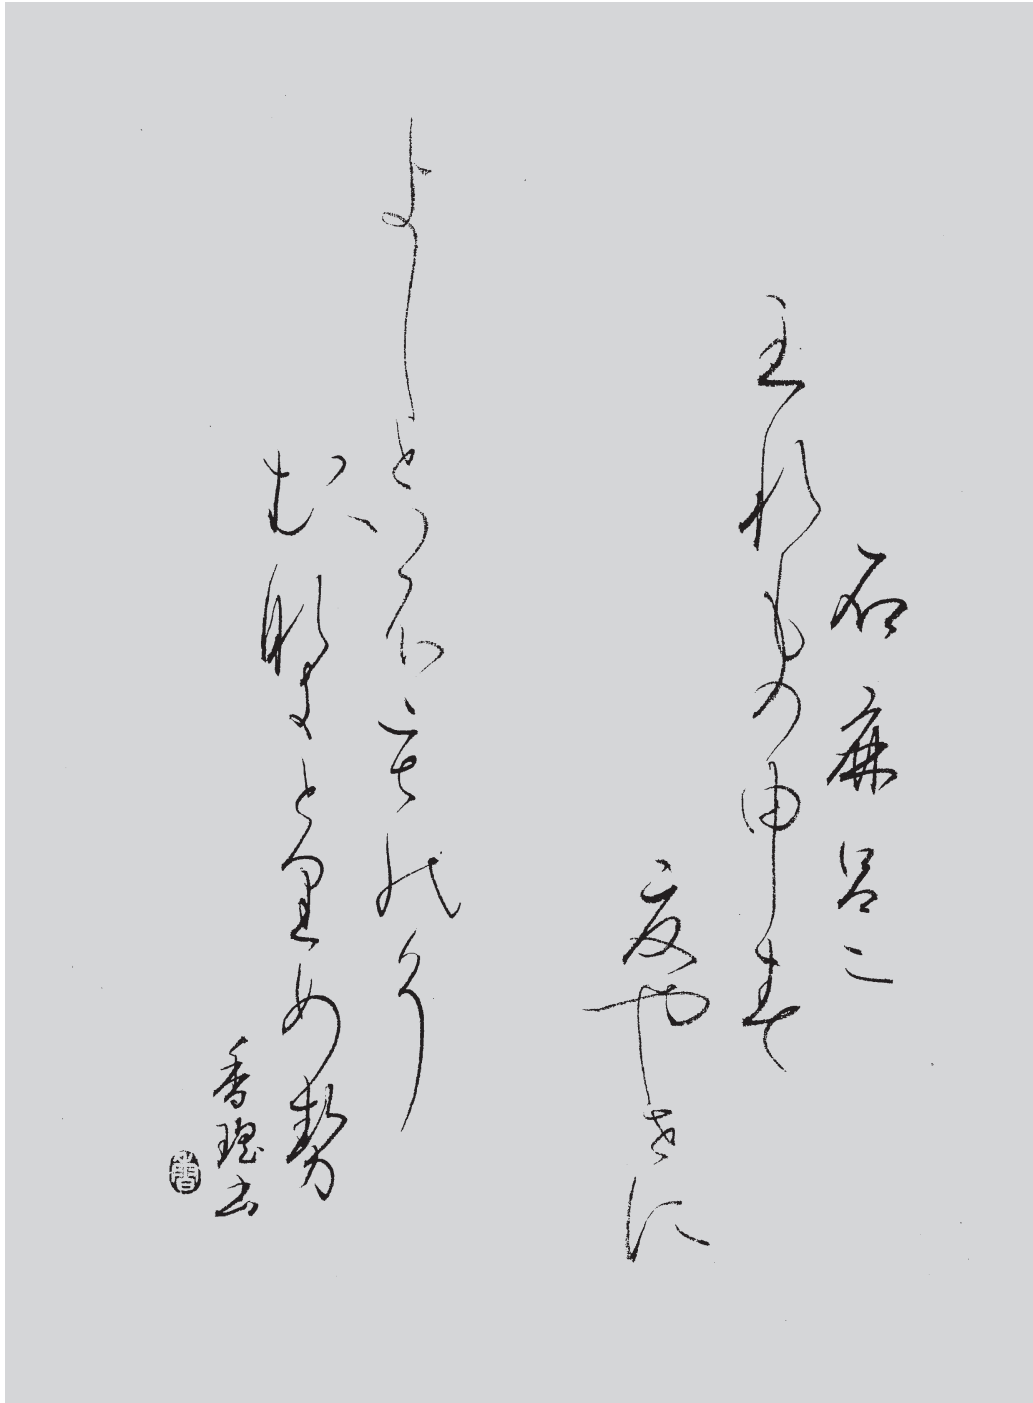 石麻呂二
王れもの申す
夏やせに
よしといふものそ
む那支と里め勢
香瑶書